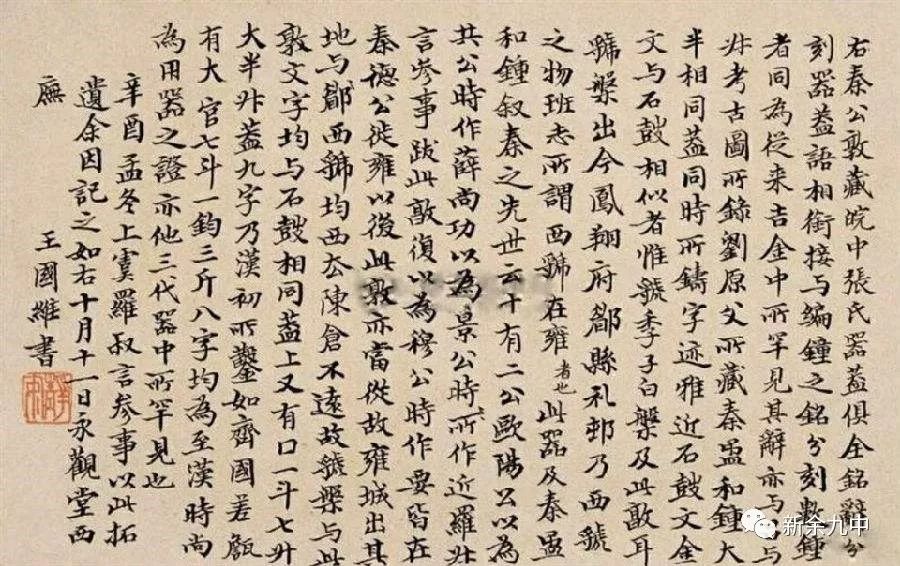 右秦公敦藏皖中張氏器蓋俱全銘辭分
刻器蓋語相銜接與編鐘之銘分刻數鐘
者同為從来吉金中所罕見其辭亦與
考古圖所錄劉原父所藏秦盄和鍾大
半相同蓋同時所鑄字迹雅近石鼓文金
文與石鼓相似者惟虢季子白槃及此敦耳
虢槃出今鳳翔府郿縣礼邨乃西虢
之物班志所謂西虢在雍者也此器及秦盄
和鍾叙秦之先世云十有二公歐陽公以為
共公時作薛尚功以為景公時所作近羅
言參事跋此敦復以為穆公時作要皆在
秦德公徙雍以後此敦亦當從故雍城出其
地与郿西虢均西去陳倉不遠故虢槃与此
敦文字均与石鼓相同蓋上又有口一斗七升
大半升蓋九字乃漢初所鑿如齊國差甔
有大官七斗一鈞三斤八字均為至漢時尚
為用器之證亦他三代器中所罕見也
辛酉孟冬上虞羅叔言參事以此拓
遺余因記之如右十月十一日永觀堂西
廡 王國維書
新余九中